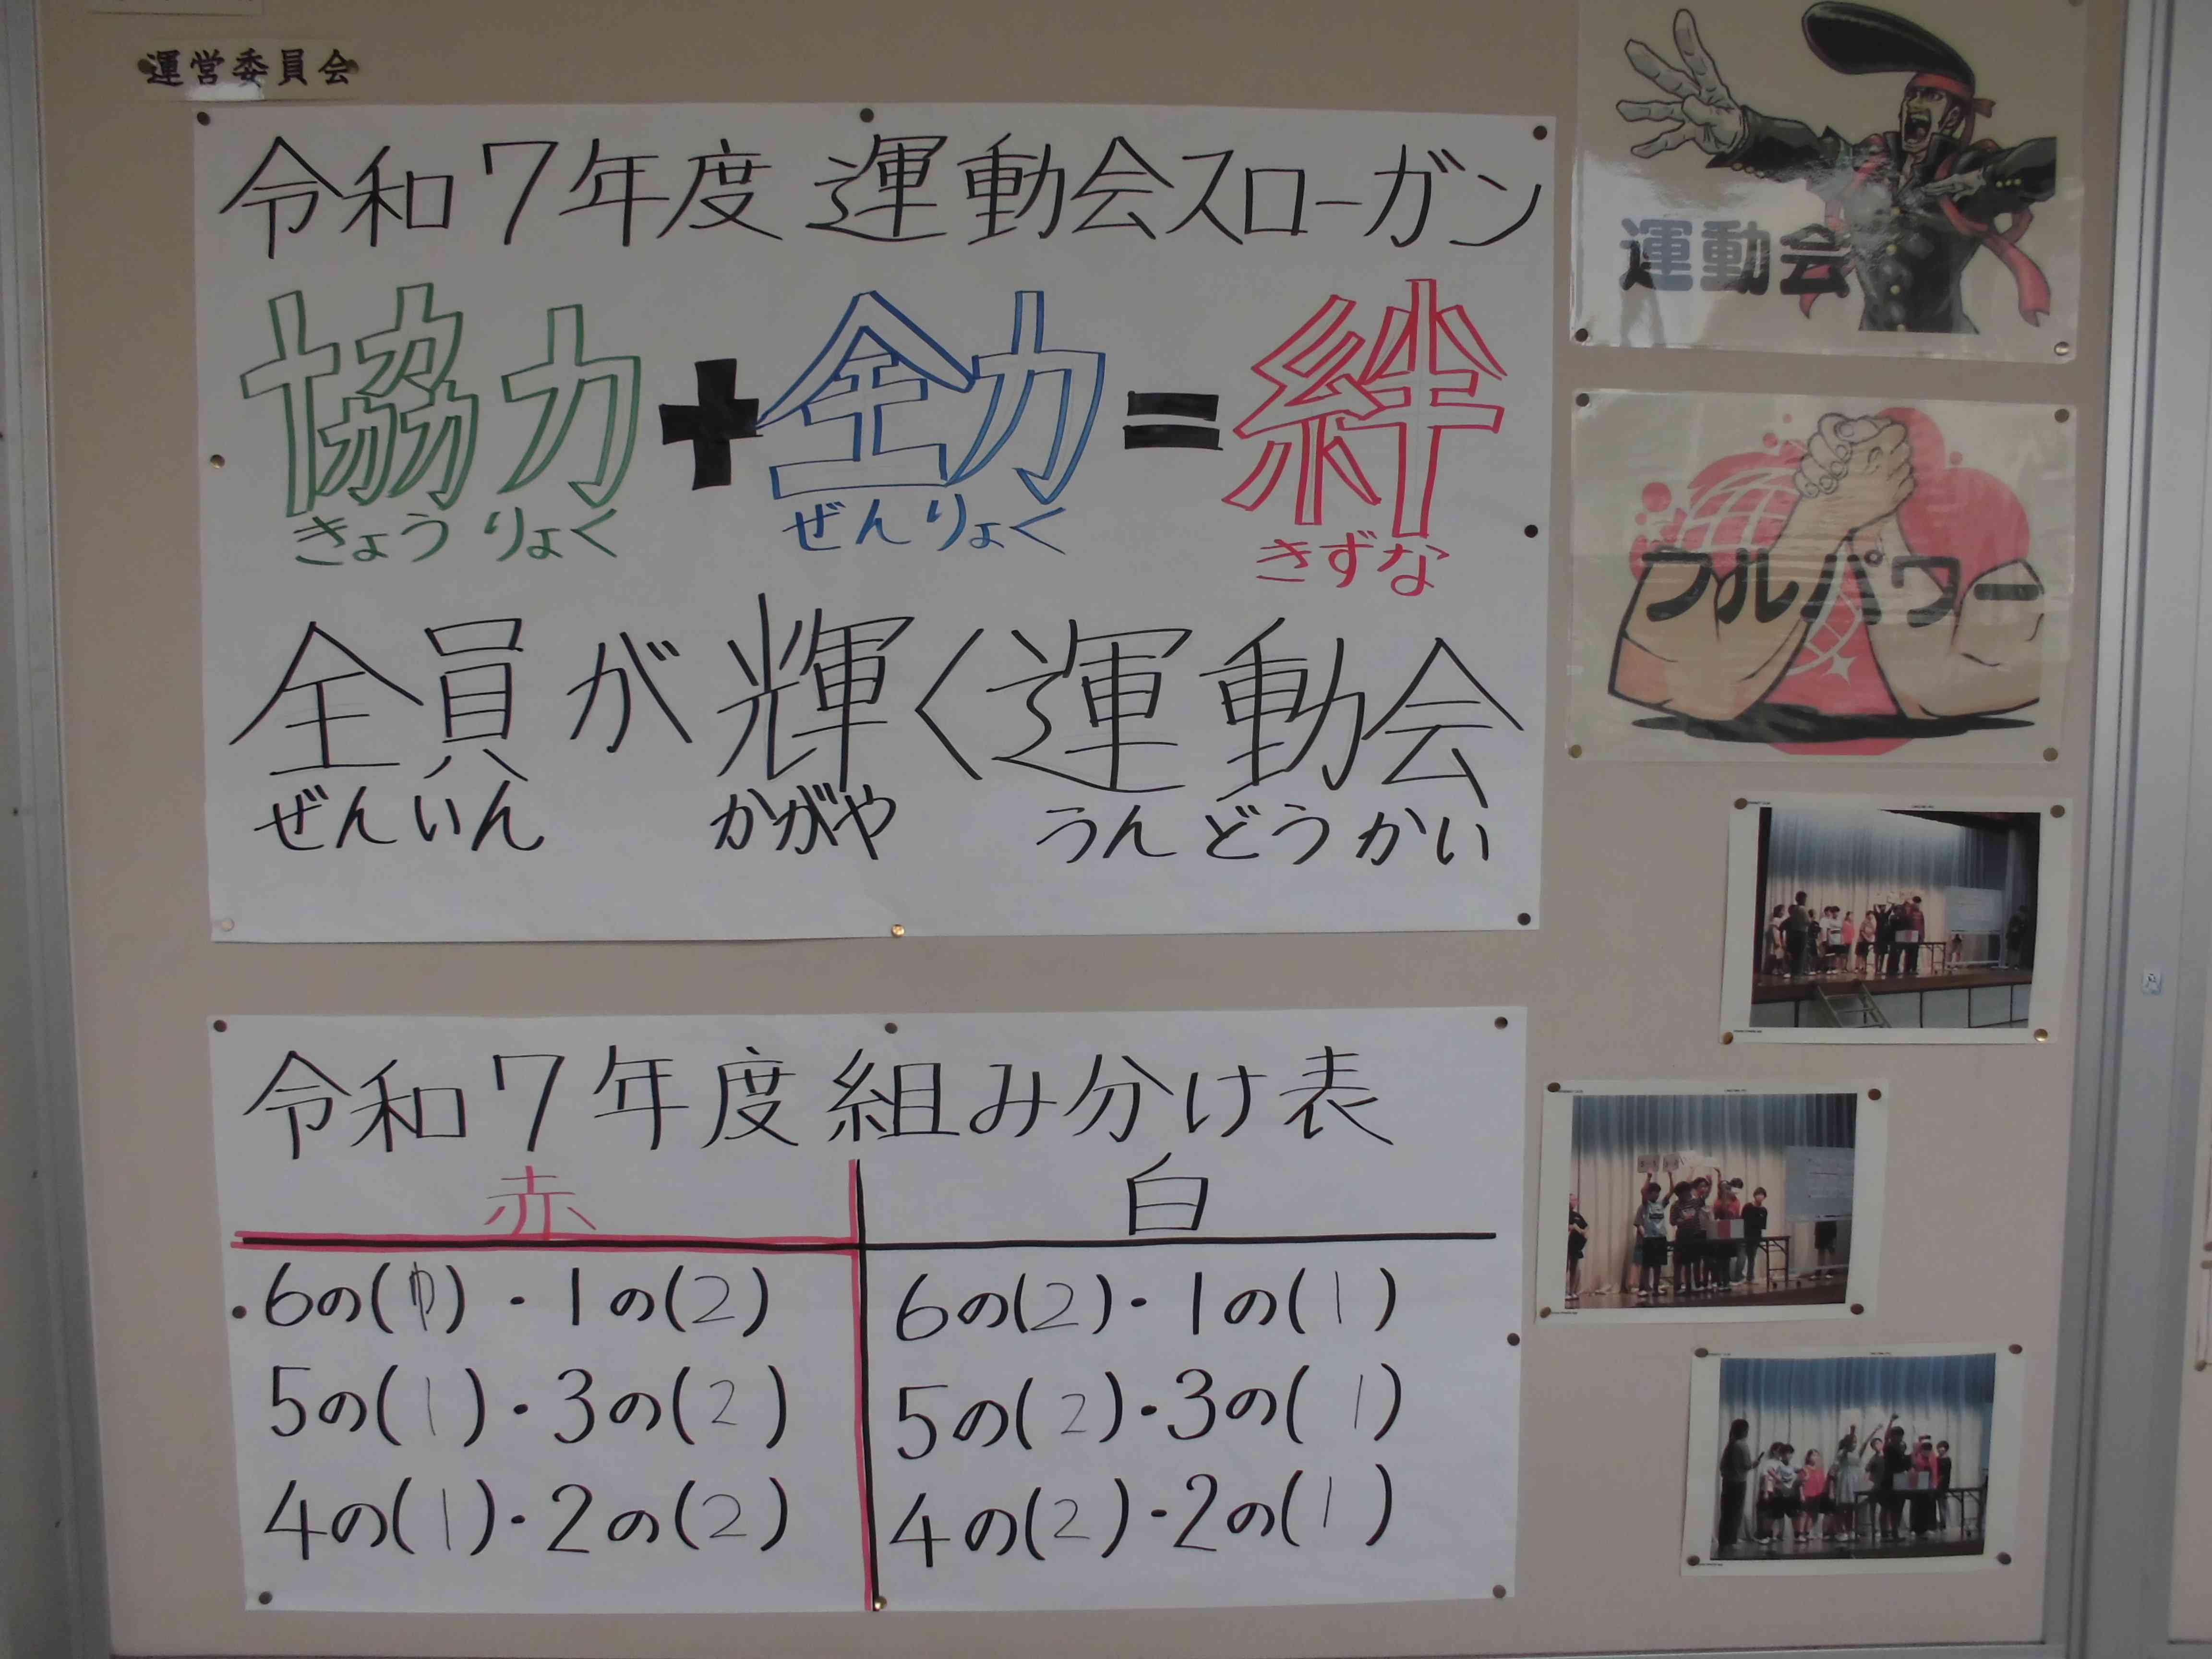 運営委員会
令和7年度 運動会スローガン
協力+全力=絆
きょうりょく ぜんりょく きずな
全員が輝く運動会
ぜんいん かがや うんどうかい
令和7年度組み分け表
赤 白
・6の(1)・1の(2) 6の(2)・1の(1)
5の(1)・3の(2) 5の(2)・3の(1)
4の(1)・2の(2) 4の(2)・2の(1)
運動会
フルパワー